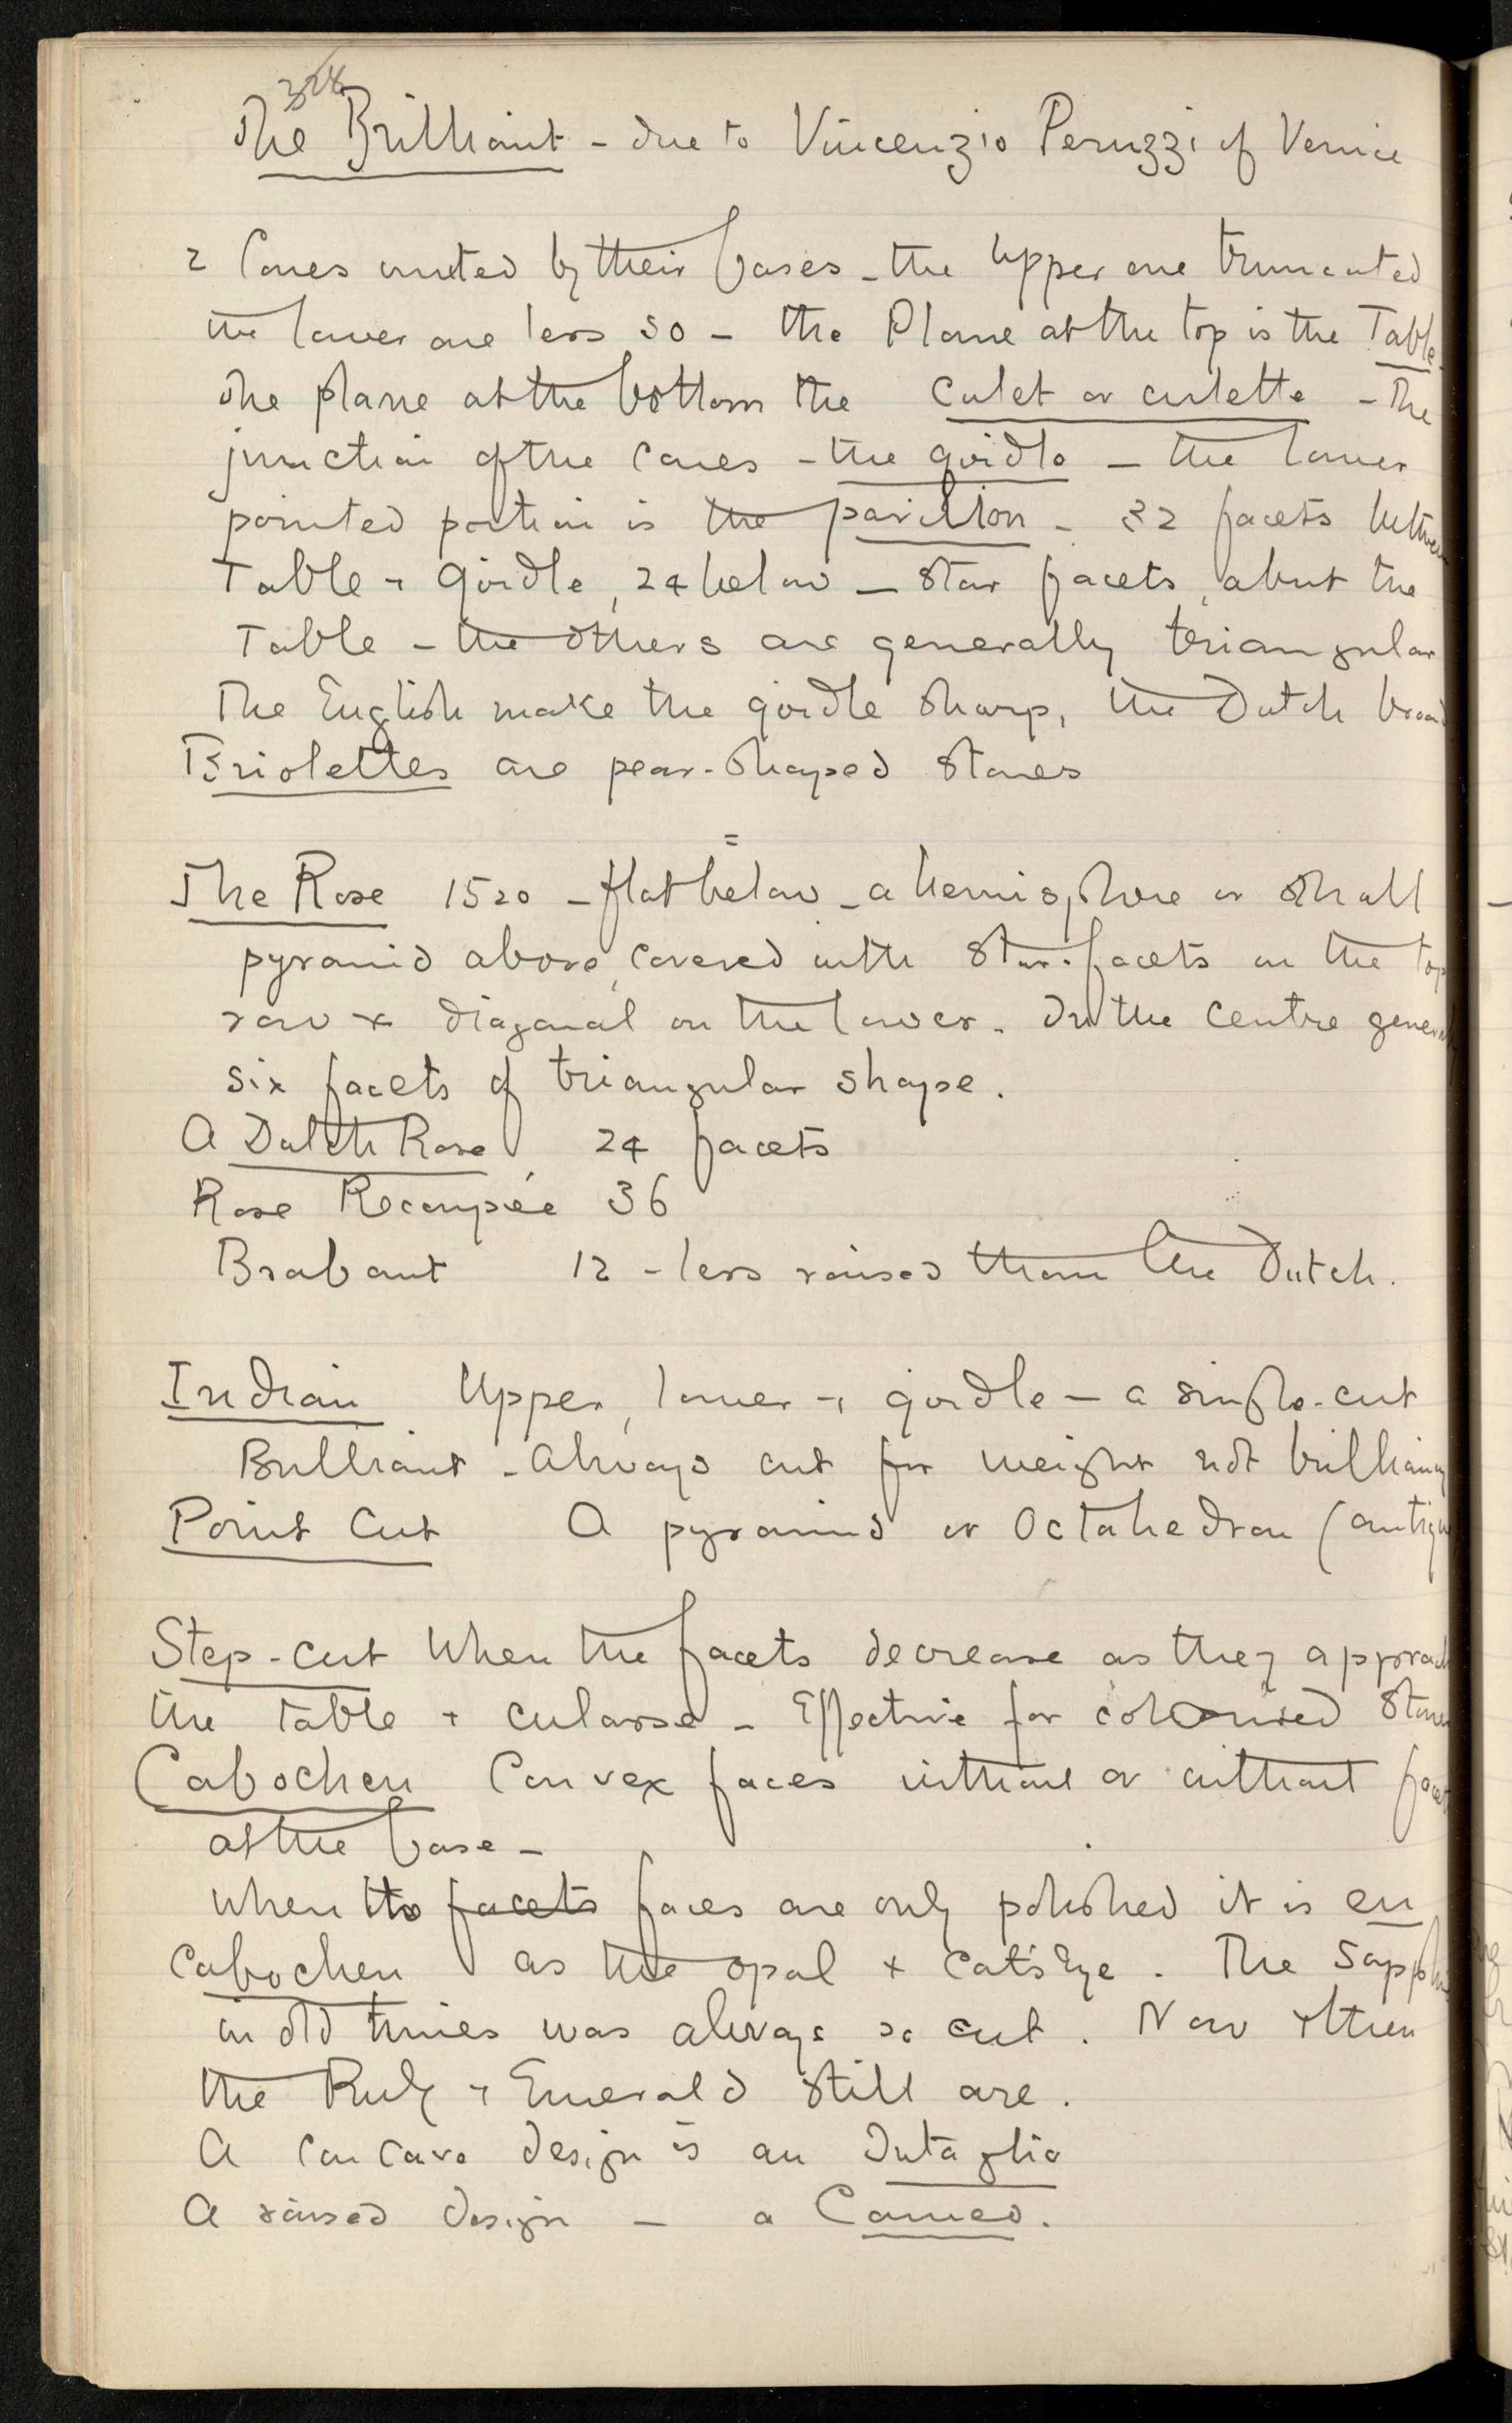 324
The Brilliant - due to Vincenzio Peruzzi of Venice
2 Cones united by their bases - the upper one truncated
the lower one less so - the Plane at the top is the Table
The plane at the bottom the Culet or culette - The
junction of the cones - the girdle - the lower
pointed portion is the pavilion - 32 facets between
Table + Girdle, 24 below - Star facets, abut the
Table - the others are generally triangular
The English make the girdle sharp, the Dutch broad
Briolettes are pear-shaped stones
The Rose 1520 - flat below - a hemisphere or small
pyramid above, covered with Star-facets on the top
row + diagonal on the lower. In the centre
six facets of triangular shape.
A Dutch Rose 24 facets
Rose Recoupée 36
Brabant 12 - less raised than the Dutch.
Indian Upper, lower + girdle - a single-cut
Brilliant - always cut for weight not brilliancy
Point Cut A pyramid or Octahedron (antique
Step-cut When the facets decrease as they approach
the table + culasse - Effective for coloured Stones
Cabochen Convex faces without or without facets
at the base -
when the facets faces are only polished it is en
Cabochen as the opal + Catseye. The Sapphire
in old times was always so cut. Now + then
the Ruby + Emerald still are.
A Concave design is an Intaglio
A raised design - a Cameo.